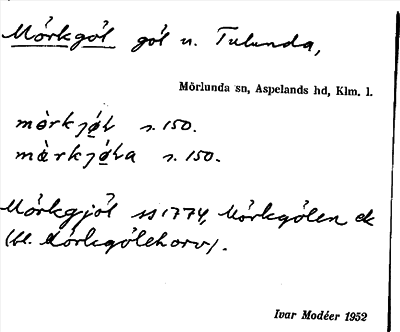 Mörkgöl göl n. Tulunda,
Mörlunda sn, Aspelands hd, Klm. l.
mö̀rkjǿ̨l s. 150.
mà̈rkjǿ̨la s. 150.
Mörkgjöl ss 1774, Mörkgölen ek
(bl.
Ivar Modéer 1952